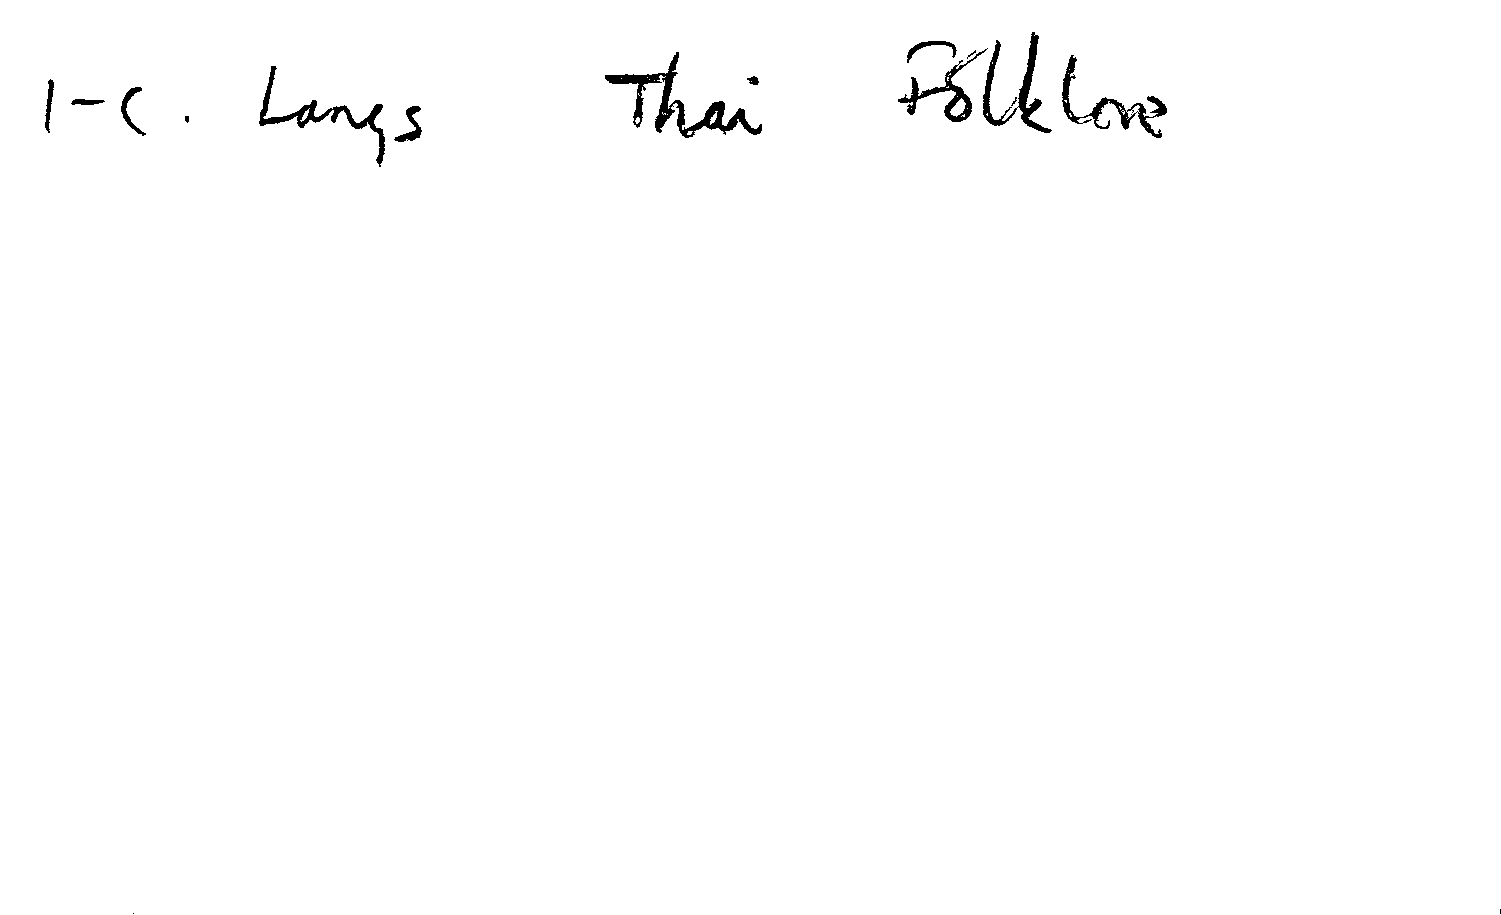 I-C. Langs Thai Folklore